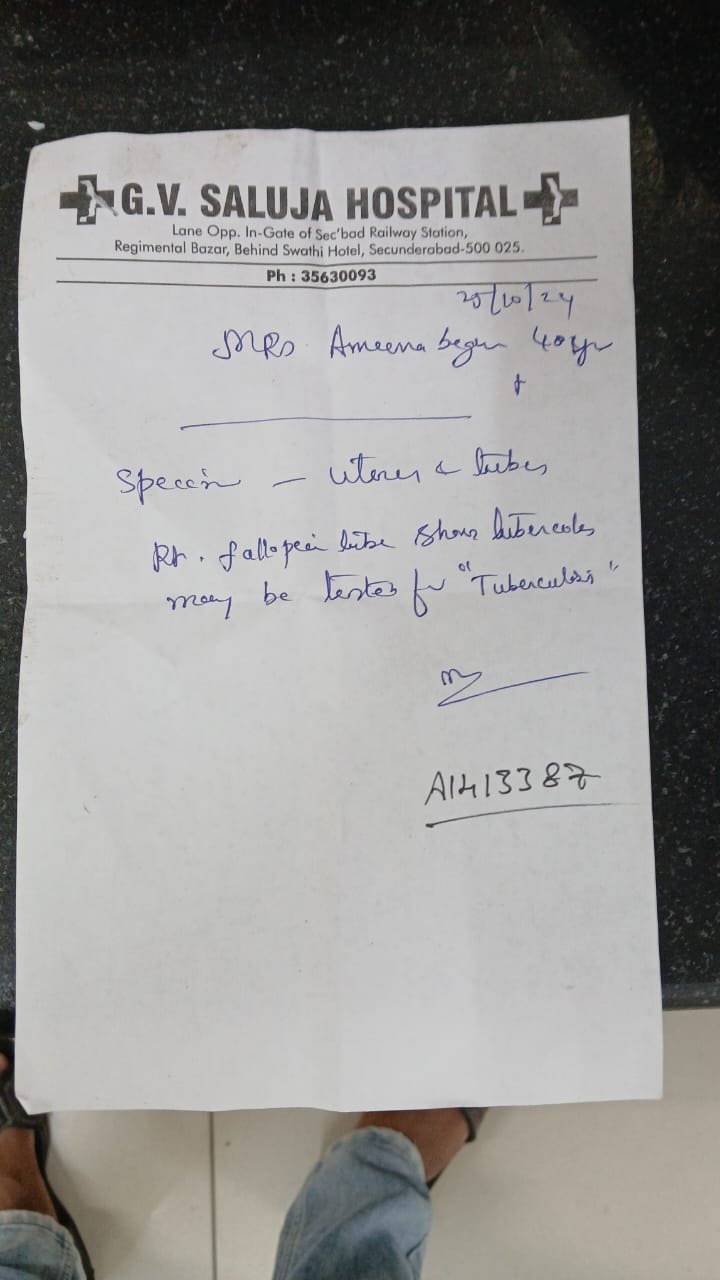 G.V. SALUJA HOSPITAL
Lane Opp. In-Gate of Sec'bad Railway Station,
Regimental Bazar, Behind Swathi Hotel, Secunderabad-500 025.
Ph : 35630093
/10/24
MRs Ameena begum 40yr
Specin - Uterus & tubes
Rt. fallopein tube shows tubercles
may be tested for of "Tuberculosis"
A1413387